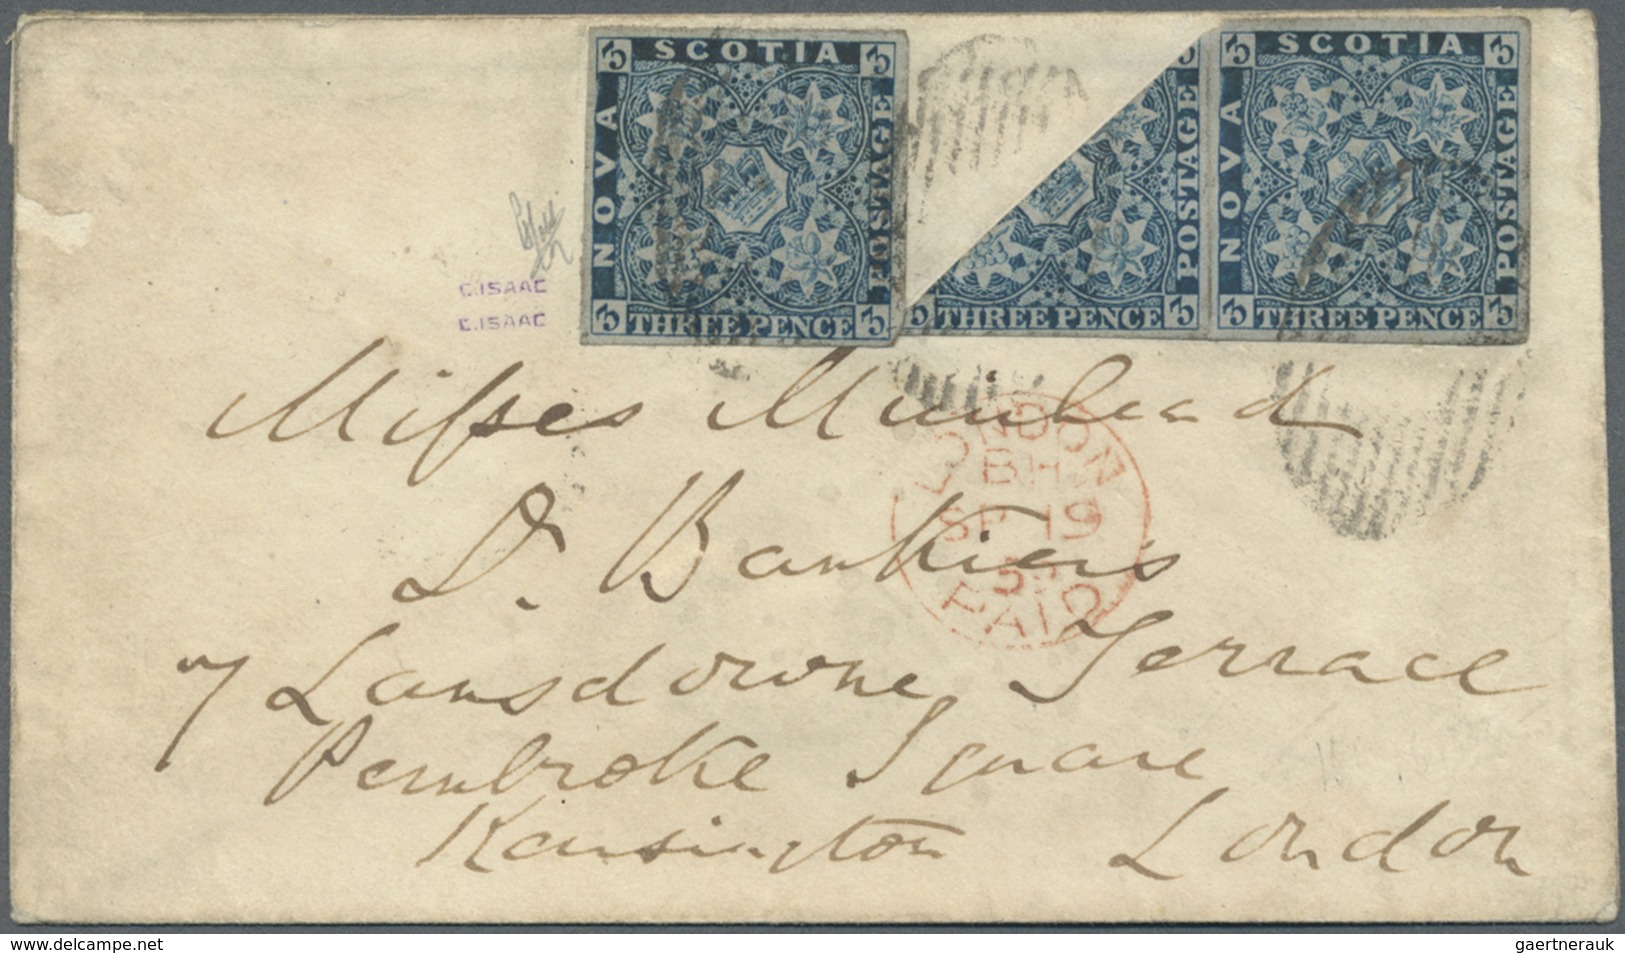 SCOTIA
NOVA
POSTAGE
THREE PENCE
3 3 3 3
POSTAGE
THREE PENCE
3 3 3
SCOTIA
NOVA
POSTAGE
THREE PENCE
3 3 3 3
C.ISAAC
C.ISAAC
Misses Muirhead
LONDON
BH
SP 19
PAID
Dr. Bankiers
7 Lansdowne Terrace
Pembroke Square
Kensington London
gaertnerauk @ delcampe.net